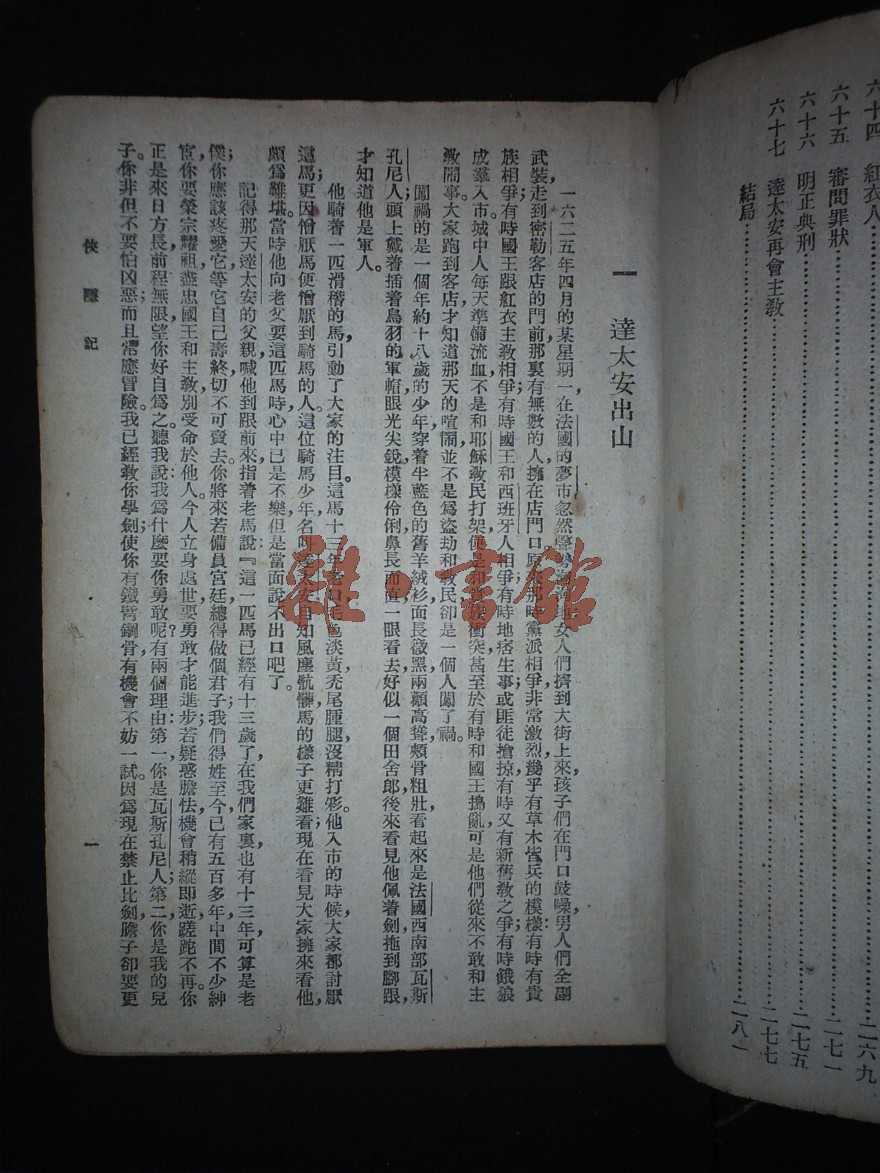 六十四 紅衣人⋯⋯二六九
六十五 審問罪狀⋯⋯二七一
六十六 明正典刑⋯⋯二七五
六十七 達太安再會主教⋯⋯二七七
結局⋯⋯二八一
一 達太安出山
一六二五年四月的某星期一在法國的夢市忽然聲勢洶洶地女人們擠到大街上來，孩子們在門口鼓噪，男人們全副
武裝走到密勒客店的門前，那裏有無數的人，擁在店門口。原來那時黨派相爭，非常激烈，幾乎有草木皆兵的模樣：有時有貴
族相爭；有時國王跟紅衣主教相爭；有時國王和西班牙人相爭；有時地痞生事；或匪徒搶掠，有時又有新舊教之爭；有時餓狼
成羣入市。城中人每天準備流血，不是和耶穌教民打架便是和貴族衝突，甚至於有時和國王搗亂，可是他們從來不敢和主
教鬧事。大家跑到客店，才知道那天的喧鬧，並不是爲盜劫和教民，卻是一個人闖了禍。
闖禍的是一個年約十八歲的少年，穿着半藍色的舊羊絨衫，面長微黑，兩顴高聳，頰骨粗壯，看起來是法國西南部瓦斯
孔尼人；頭上戴着插着鳥羽的軍帽，眼光尖銳，模樣伶俐，鼻長而直，一眼看去，好似一個田舍郎，後來看見他佩着劍，拖到腳跟，
才知道他是軍人。
他騎着一匹滑稽的馬，引動了大家的注目。這馬十三年老口，毛色淡黃，禿尾腫腿，沒精打彩。他入市的時候，大家都討厭
這馬；更因憎厭馬便憎厭到騎馬的人。這位騎馬少年名叫達太安，自知風塵骯髒，馬的樣子更難看；現在看見大家擁來看他，
頗爲難堪。當時他向老父要這匹馬時，心中已是不樂，但是當面說不出口吧了。
記得那天達太安的父親，喊他到跟前來，指着老馬說：『這一匹馬已經有十三歲了，在我們家裏，也有十三年，可算是老
僕，你應該疼愛它，等它自己壽終，切不可賣去。你將來若備員宮廷，總得做個君子；我們得姓至今，已有五百多年，中間不少紳
宦，你要榮宗耀祖，盡忠國王和主教，別受命於他人。今人立身處世，要勇敢才能進步；若疑惑膽怯，機會稍縱即逝，蹉跎不再。你
正是來日方長，前程無限，望你好自爲之。聽我說，我爲什麼要你勇敢呢？有兩個理由：第一，你是瓦斯孔尼人；第二，你是我的兒
子。你非但不要怕凶惡，而且常應冒險。我已經教你學劍；使你有鐵臂鋼骨，有機會不妨一試。因爲現在禁止比劍，膽子卻要更
俠隱記
一
雜·書館